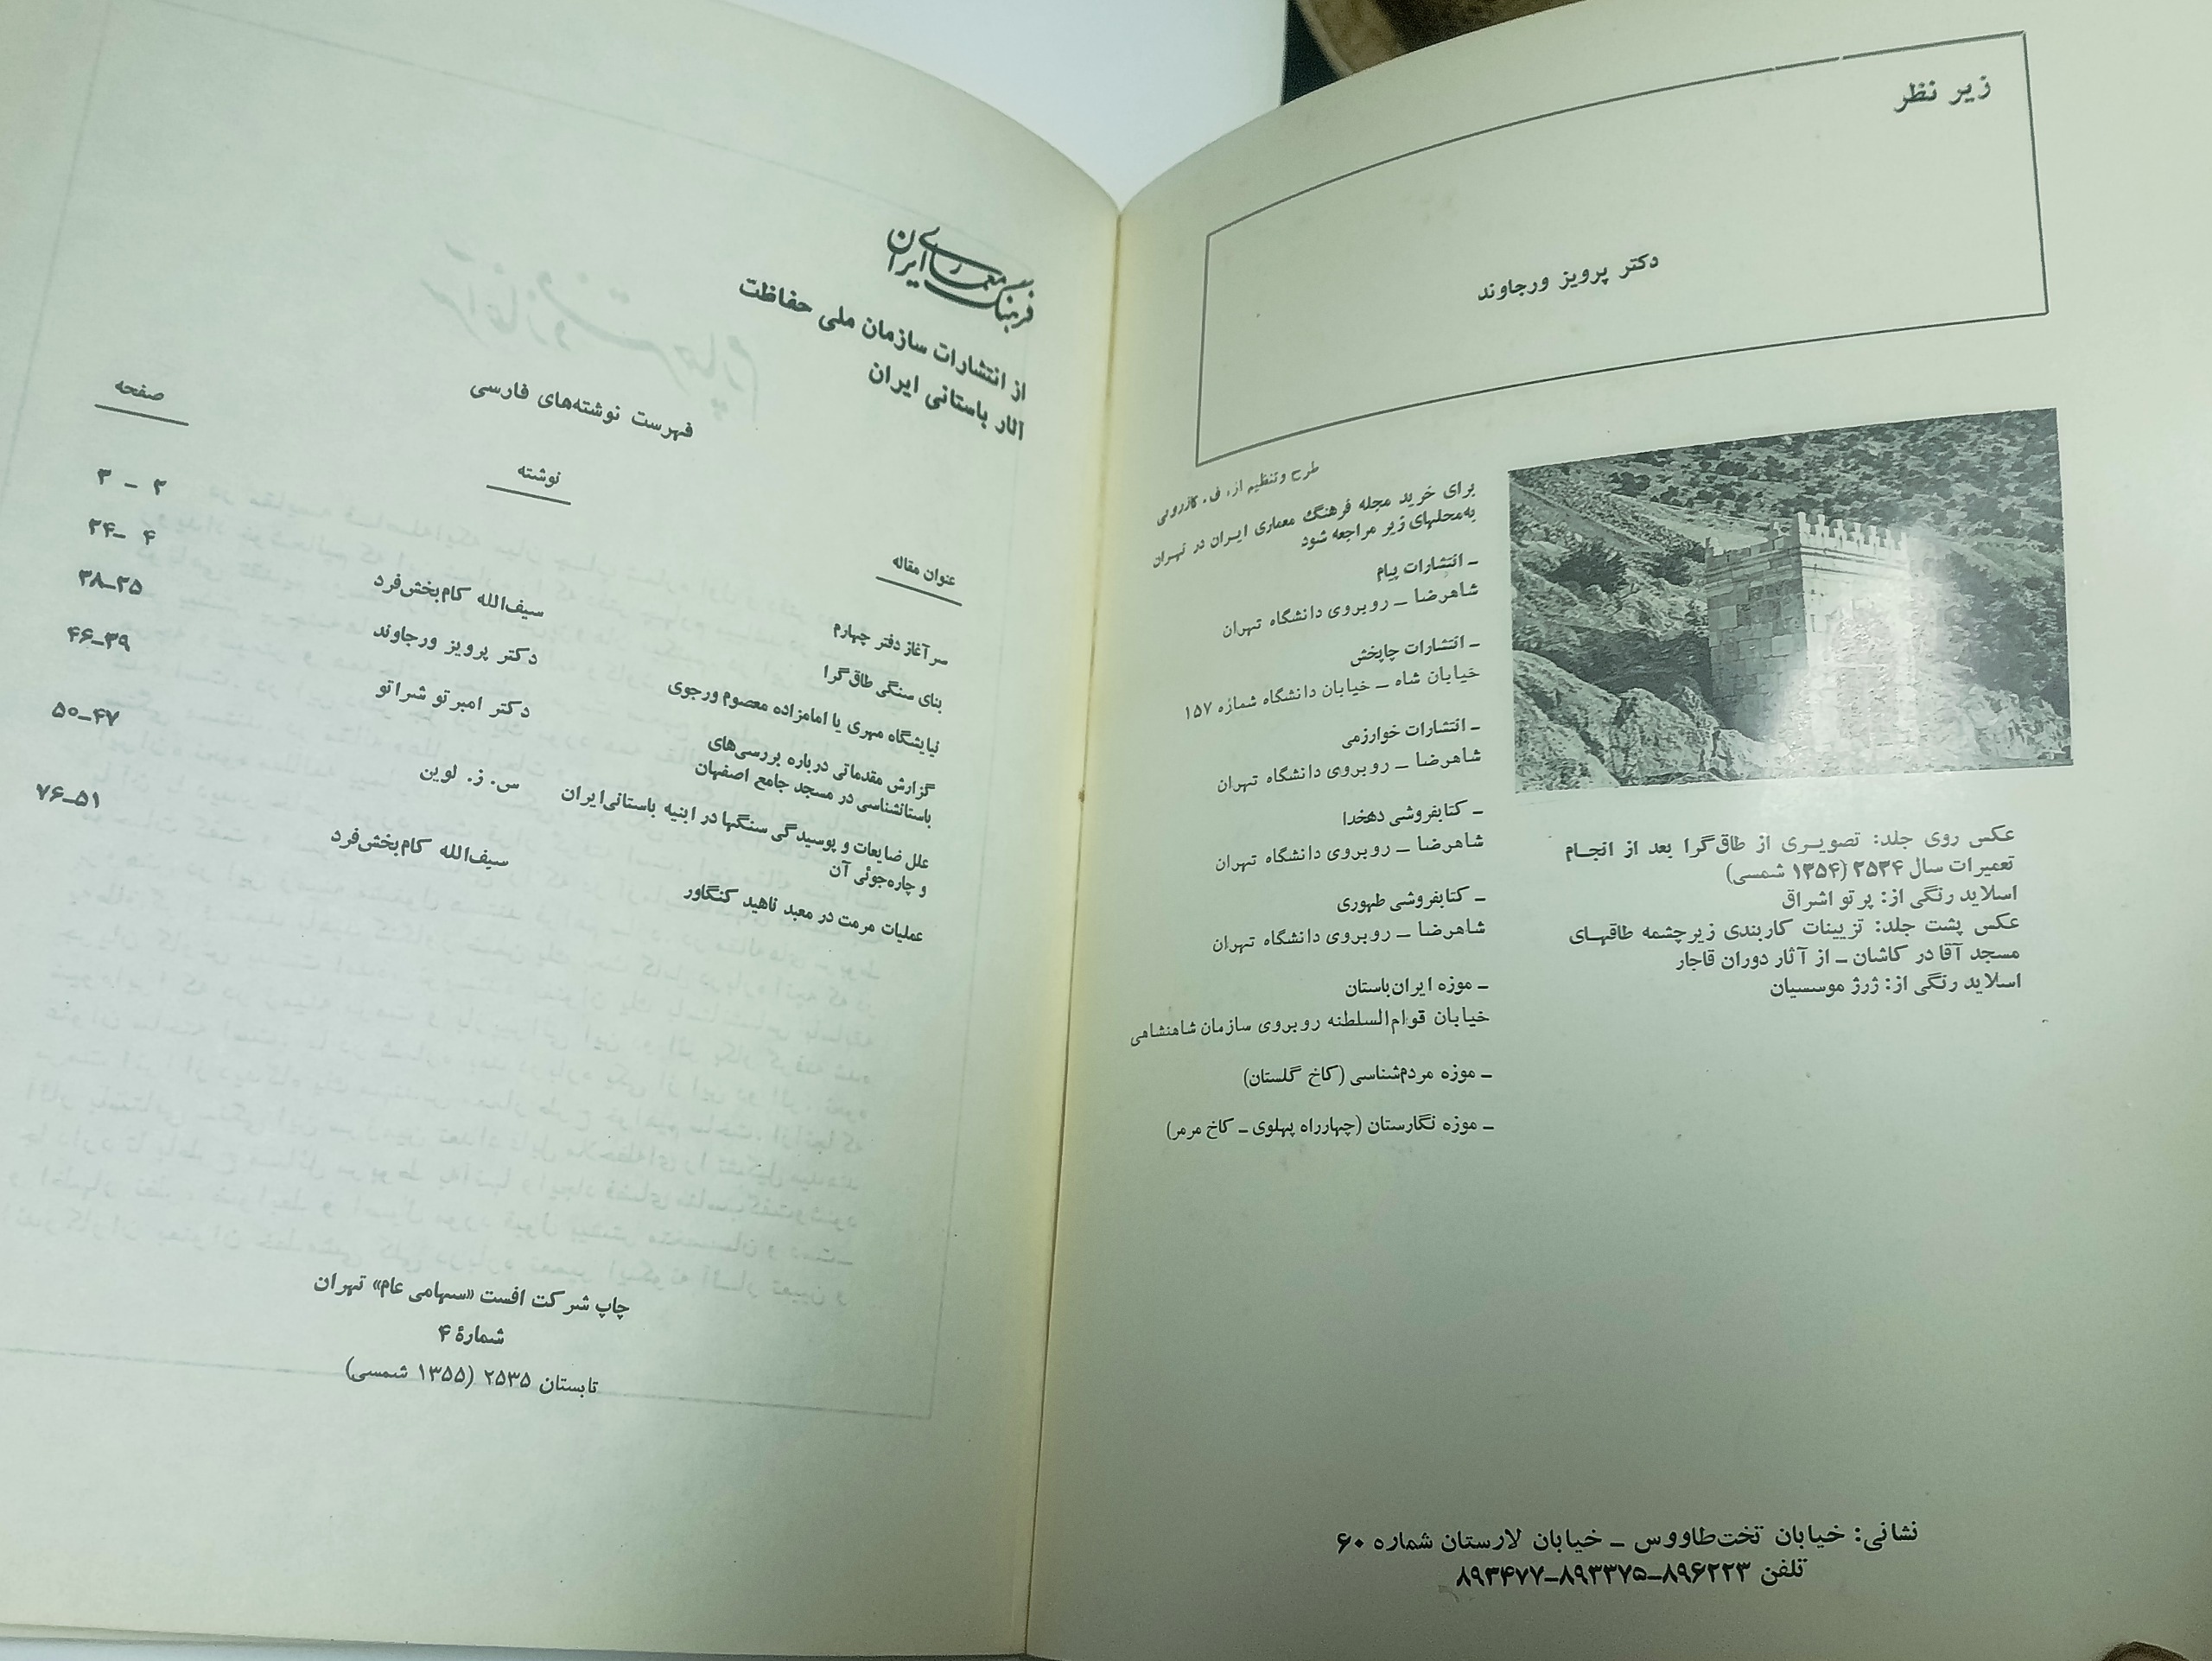 زیر نظر
دکتر پرویز ورجاوند
طرح و تنظیم از، ف. کازرونی
برای خرید مجله فرهنگ معماری ایران در تهران
به‌محلهای زیر مراجعه شود
ـ انتشارات پیام
شاهرضا ـ روبروی دانشگاه تهران
ـ انتشارات چاپخش
خیابان شاه ـ خیابان دانشگاه شماره ۱۵۷
ـ انتشارات خوارزمی
شاهرضا ـ روبروی دانشگاه تهران
ـ کتابفروشی دهخدا
شاهرضا ـ روبروی دانشگاه تهران
ـ کتابفروشی طهوری
شاهرضا ـ روبروی دانشگاه تهران
ـ موزه ایران‌باستان
خیابان قوام‌السلطنه روبروی سازمان شاهنشاهی
ـ موزه مردم‌شناسی (کاخ گلستان)
ـ موزه نگارستان (چهارراه پهلوی ـ کاخ مرمر)
عکس روی جلد: تصویری از طاق‌گرا بعد از انجام
تعمیرات سال ۲۵۳۴ (۱۳۵۴ شمسی)
اسلاید رنگی از: پرتو اشراق
عکس پشت جلد: تزیینات کاربندی زیرچشمه طاقهای
مسجد آقا در کاشان ـ از آثار دوران قاجار
اسلاید رنگی از: ژرژ موسسیان
نشانی: خیابان تخت‌طاووس ـ خیابان لارستان شماره ۶۰
تلفن ۸۹۶۲۲۳ـ۸۹۳۳۷۵ـ۸۹۳۴۷۷
فرهنگ معماری ایران
از انتشارات سازمان ملی حفاظت
آثار باستانی ایران
فهرست نوشته‌های فارسی
عنوان مقاله نوشته صفحه
سرآغاز دفتر چهارم ۲ ـ ۳
بنای سنگی طاق‌گرا سیف‌الله کام‌بخش‌فرد ۴ ـ۲۴
نیایشگاه مهری یا امامزاده معصوم ورجوی دکتر پرویز ورجاوند ۲۵ـ۳۸
گزارش مقدماتی درباره بررسی‌های
باستانشناسی در مسجد جامع اصفهان دکتر امبرتو شراتو ۳۹ـ۴۶
علل ضایعات و پوسیدگی سنگها در ابنیه باستانی‌ایران س. ز. لوین ۴۷ـ۵۰
و چاره‌جوئی آن
عملیات مرمت در معبد ناهید کنگاور سیف‌الله کام‌بخش‌فرد ۵۱ـ۷۶
چاپ شرکت افست «سهامی عام» تهران
شمارهٔ ۴
تابستان ۲۵۳۵ (۱۳۵۵ شمسی)